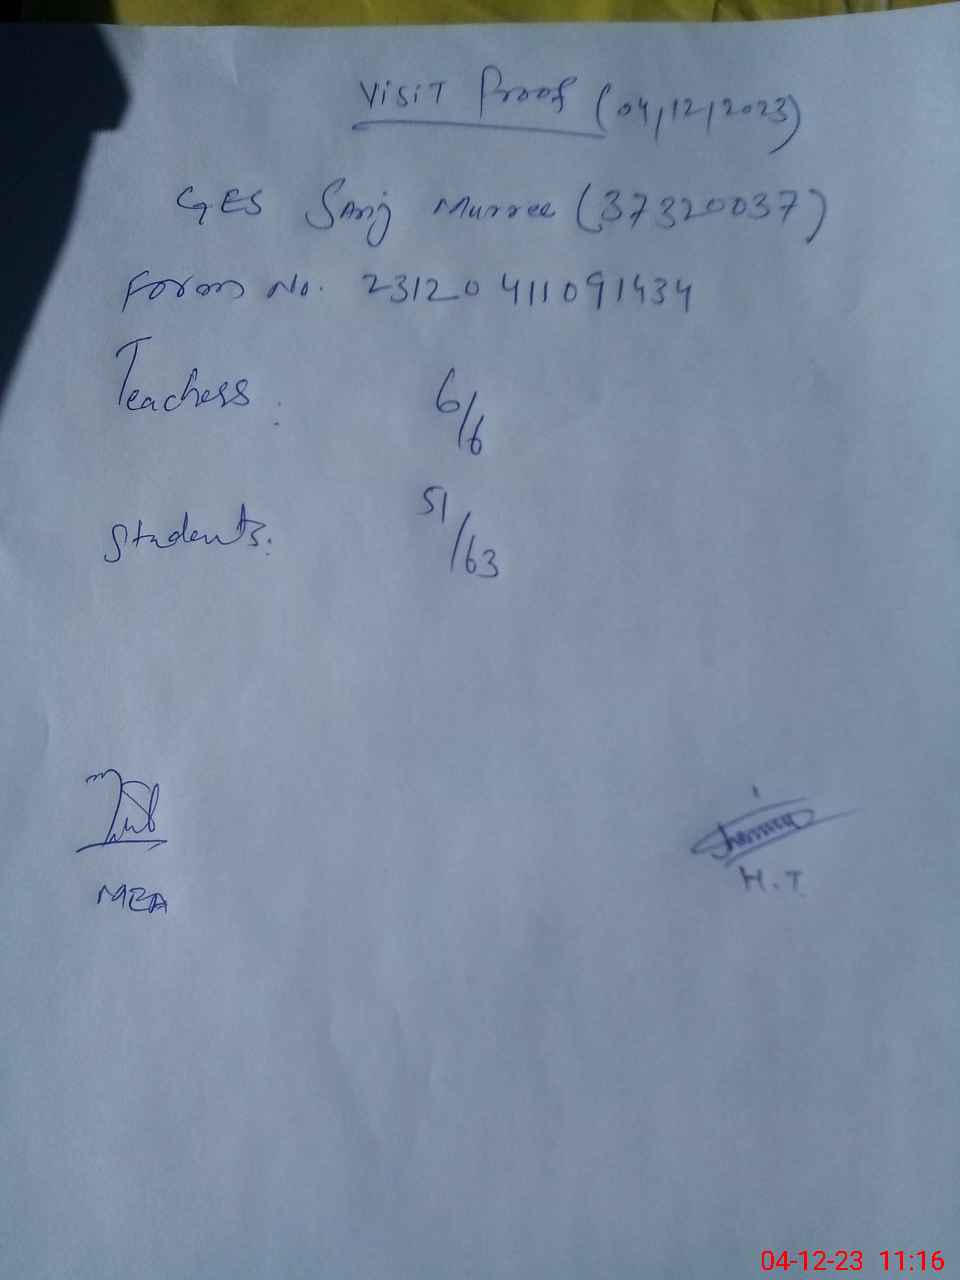 Visit Proof (04/12/2023)
GES Sanj Murree (37320037)
Form No. 23120411091434
Teachers. 6/6
Students. 51/63
MEA
H.T
04-12-23 11:16